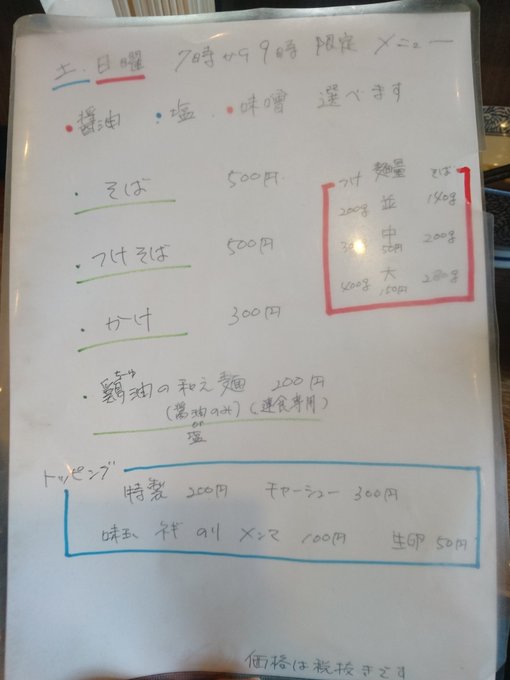 土・日曜 7時から9時 限定 メニュー
・醤油 ・塩 ・味噌 選べます
・そば 500円
・つけそば 500円
・かけ 300円
つけ 麺量 そば
200g 並 140g
中 200g
50円
400g 大 280g
150円
ちゆ
・鶏油の和え麺 200円
(醤油のみ) (連食専用)
or
塩
トッピング
特製 200円 チャーシュー 300円
味玉 ネギ のり メンマ 100円 生卵 50円
価格は税抜きです